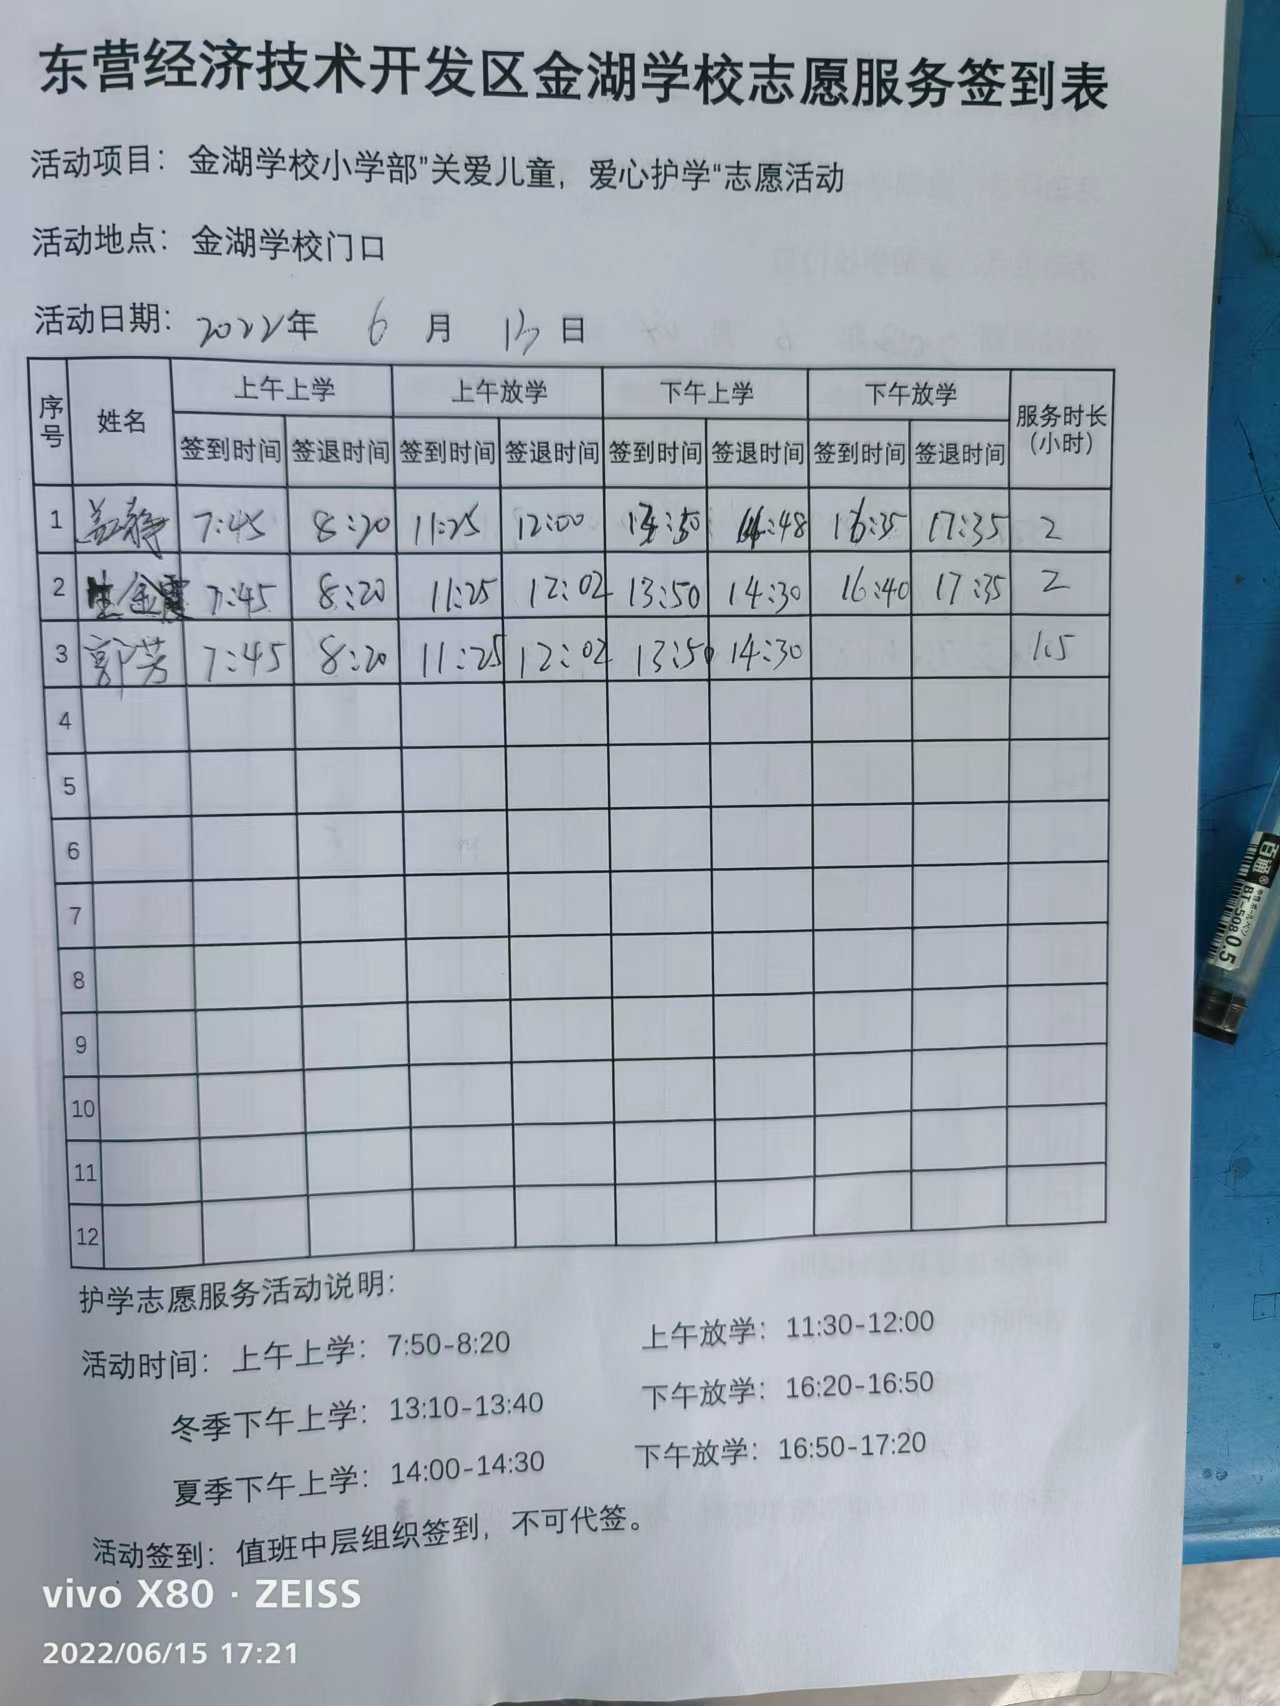 东营经济技术开发区金湖学校志愿服务签到表
活动项目：金湖学校小学部”关爱儿童，爱心护学“志愿活动
活动地点：金湖学校门口
活动日期：2022年 6 月 13 日
序号 姓名 上午上学 上午放学 下午上学 下午放学 服务时长（小时）
签到时间 签退时间 签到时间 签退时间 签到时间 签退时间 签到时间 签退时间
1 7:45 8:20 11:25 12:00 :48 16:35 17:35 2
2 金霞 7:45 8:20 11:25 12:02 13:50 14:30 16:40 17:35 2
3 郭芳 7:45 8:20 11:25 12:02 13:50 14:30 1.5
4
5
6
7
8
9
10
11
12
护学志愿服务活动说明：
活动时间：上午上学：7:50-8:20 上午放学：11:30-12:00
冬季下午上学：13:10-13:40 下午放学：16:20-16:50
夏季下午上学：14:00-14:30 下午放学：16:50-17:20
活动签到：值班中层组织签到，不可代签。
vivo X80 · ZEISS
2022/06/15 17:21
BT-508 0.5